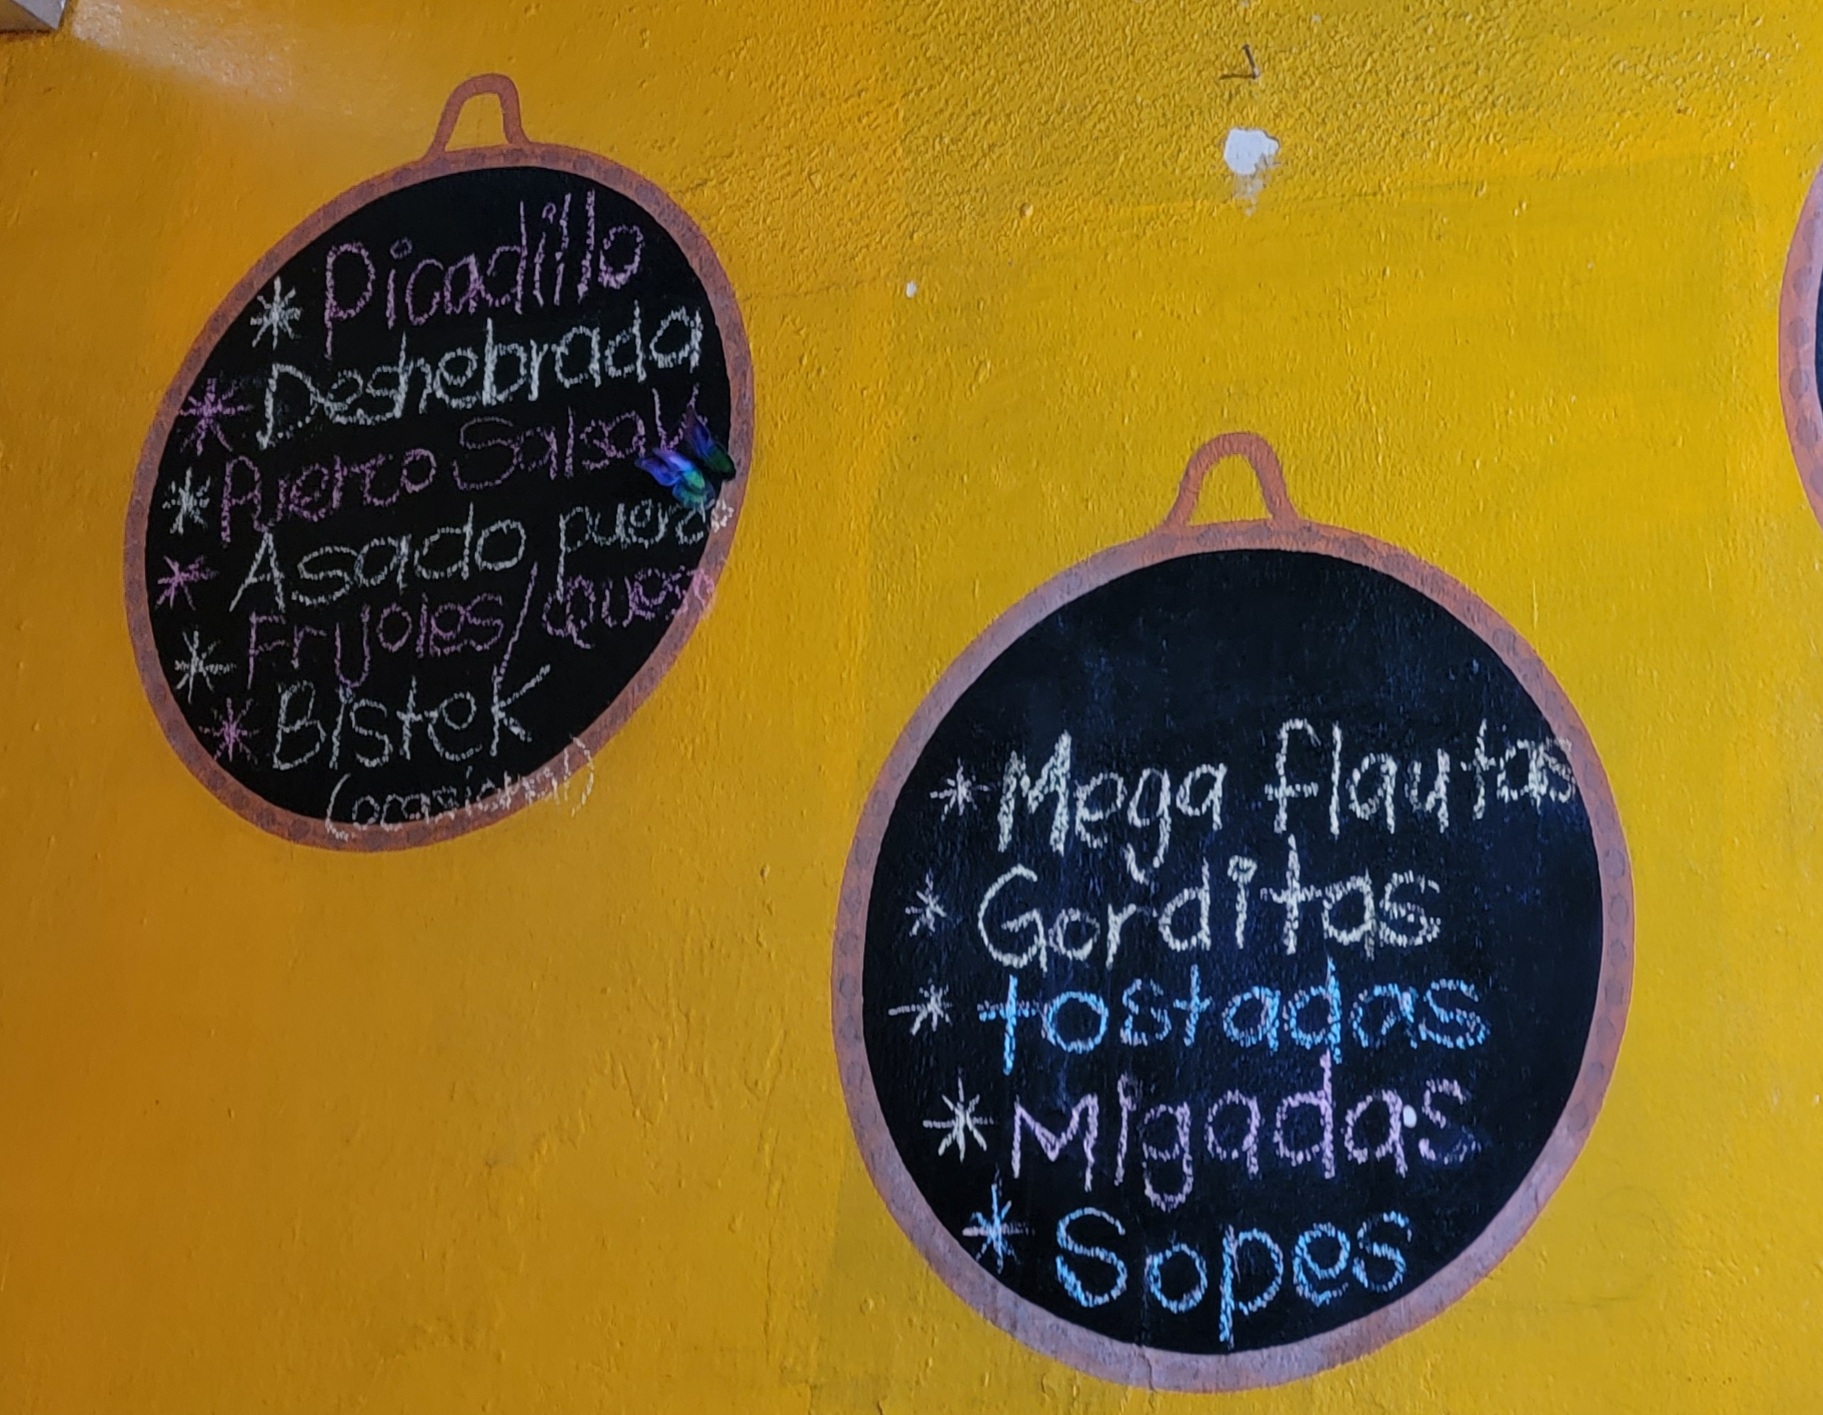 * Picadillo
* Deshebrada
* Puerco Salsa V
* Asado puerco
* Frijoles/queso
* Bistek
(ocasional)
* Mega flautas
* Gorditas
* tostadas
* Migadas
* Sopes